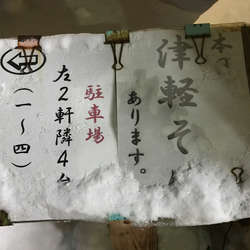 本
津軽そば
あります。
駐車場
左2軒隣4台
(一〜四)